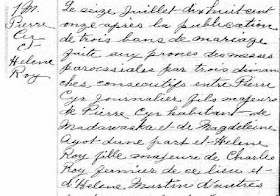 1 M.
Pierre
Cyr
et
Helene
Roy
Le seize Juillet dix huit cent
onze après la publication
de trois bans de mariage
faite aux prones des messes
paroissiales par trois diman
ches consecutifs entre Pierre
Cyr journalier, fils majeur
de Pierre Cyr habitant de
Madawaska et de Magdeleine
Ayot d'une part et Helene
Roy fille mineure de Charle
Roy fermier de ce lieu et
d'Helene